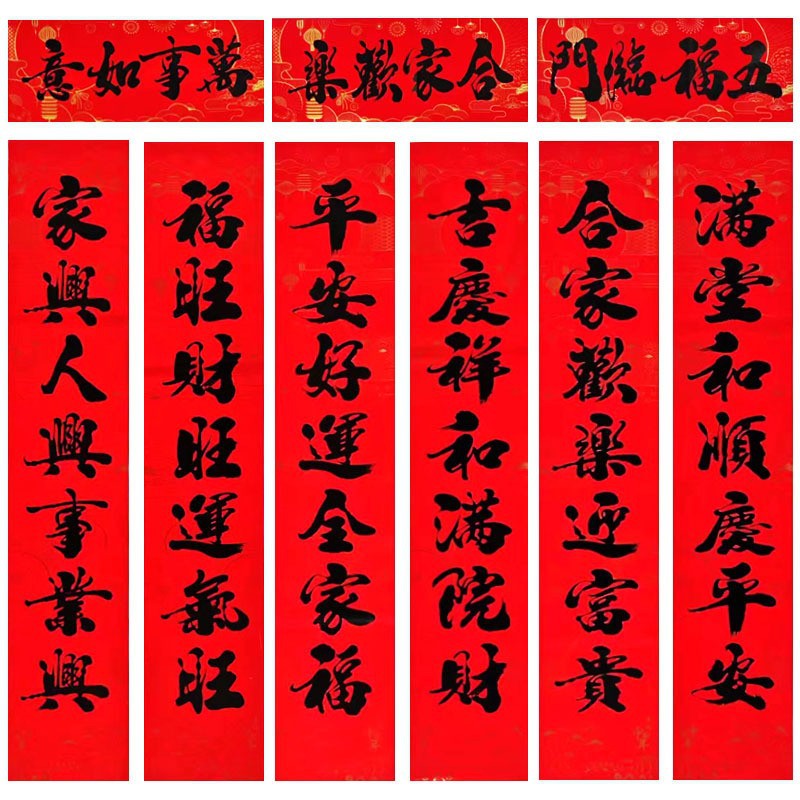 萬事如意
合家歡樂
五福臨門
家興人興事業興
福旺財旺運氣旺
平安好運全家福
吉慶祥和满院財
合家歡樂迎富貴
满堂和順慶平安